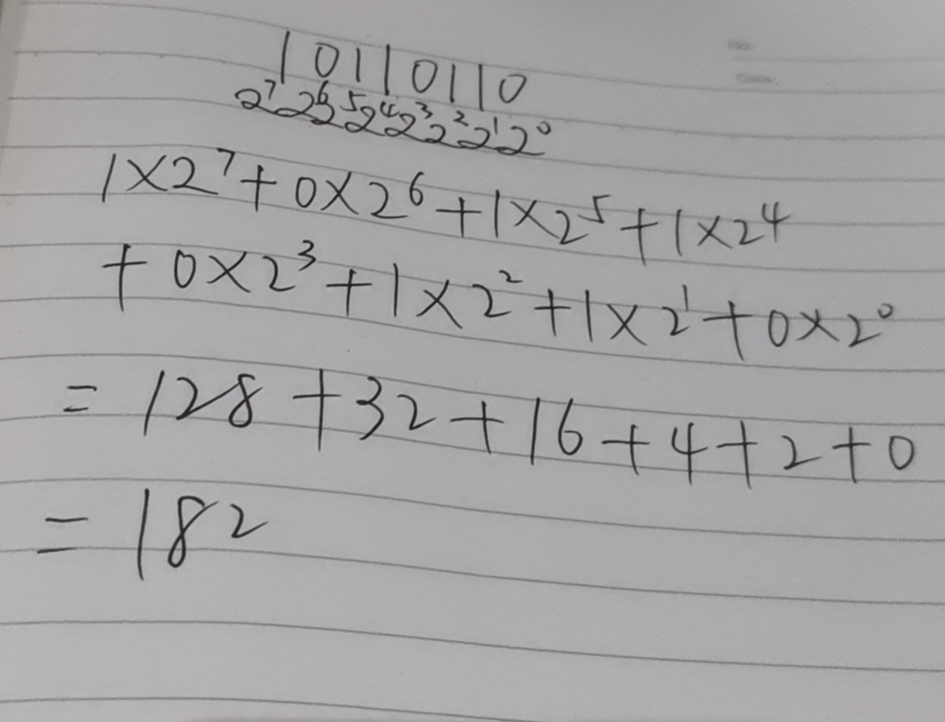 10110110
2⁷2⁶2⁵2⁴2³2²2¹2⁰
1×2⁷+0×2⁶+1×2⁵+1×2⁴
+0×2³+1×2²+1×2¹+0×2⁰
=128+32+16+4+2+0
=182